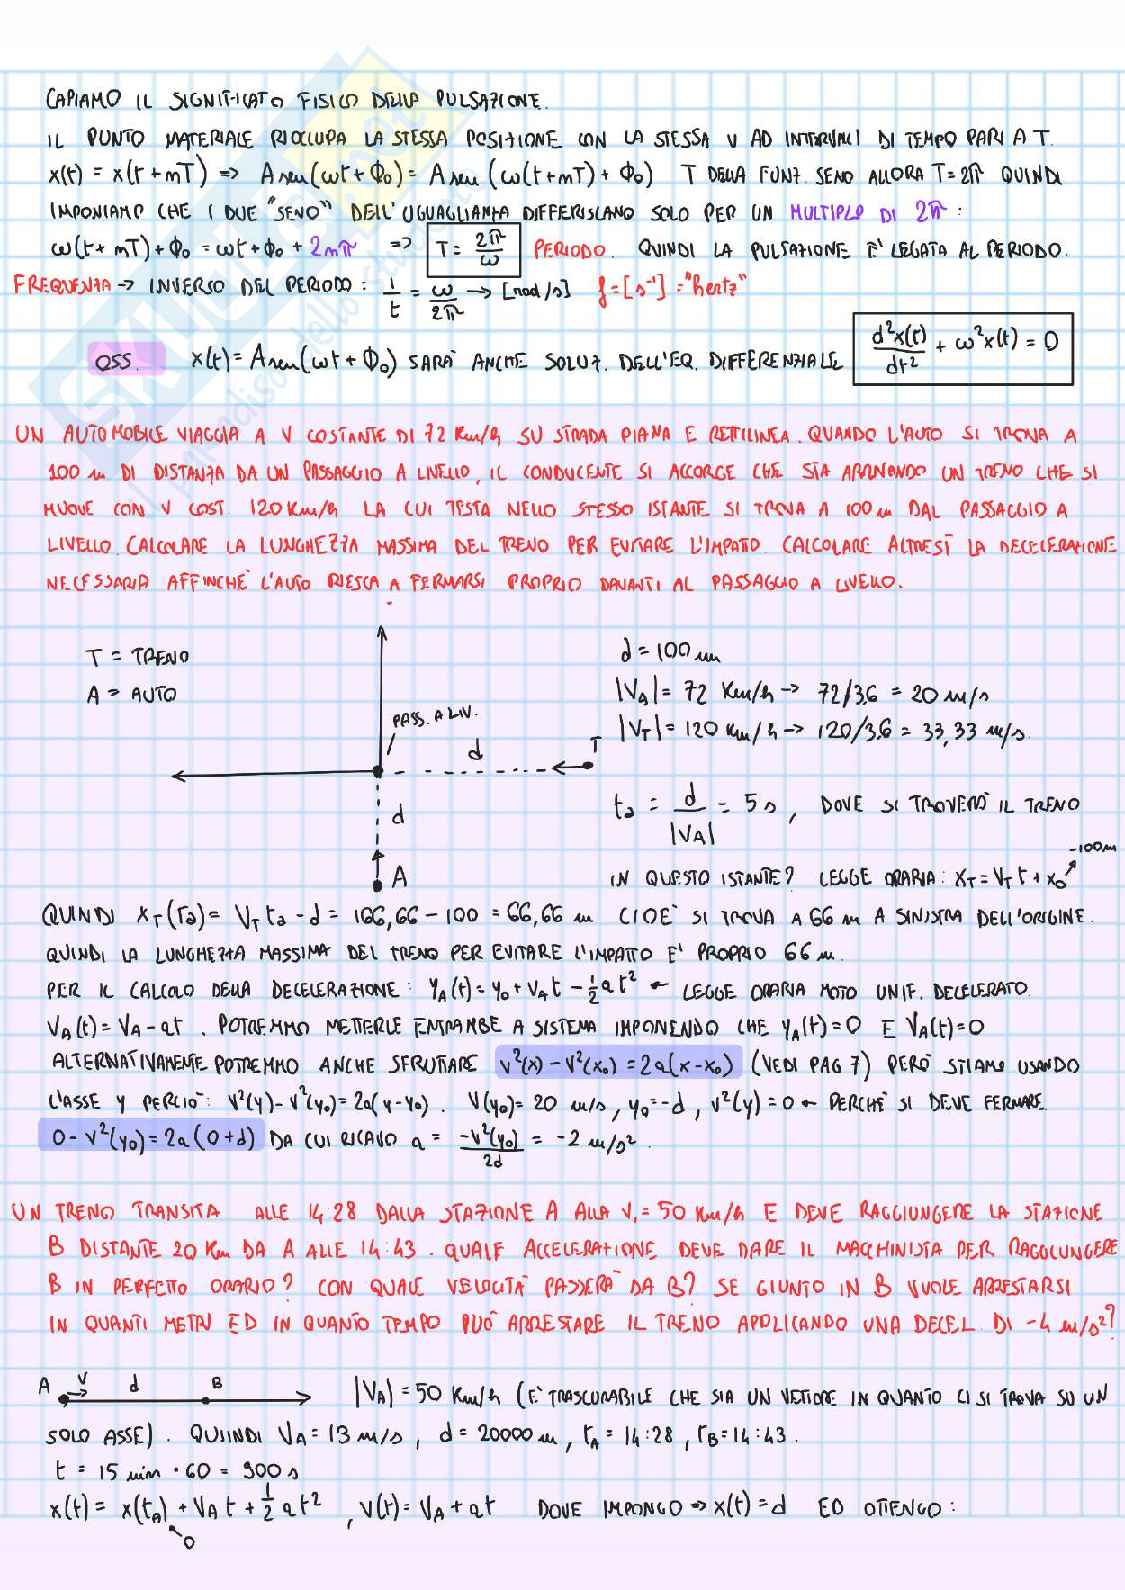 CAPIAMO IL SIGNIFICATO FISICO DELLA PULSAZIONE.
IL PUNTO MATERIALE RIOCCUPA LA STESSA POSIZIONE CON LA STESSA V AD INTERVALLI DI TEMPO PARI A T.
x(t) = x(t+mT) => A sen(ωt+ϕ₀) = A sen(ω(t+mT)+ϕ₀) T DELLA FUNZ. SENO ALLORA T=2π QUINDI
IMPONIAMO CHE I DUE "SENO" DELL'UGUAGLIANZA DIFFERISCANO SOLO PER UN MULTIPLO DI 2π:
ω(t+mT)+ϕ₀ = ωt+ϕ₀+2mπ => T = 2π/ω PERIODO. QUINDI LA PULSAZIONE E' LEGATA AL PERIODO.
FREQUENZA → INVERSO DEL PERIODO: 1/t = ω/2π → [rad/s] f=[s⁻¹]="hertz"
OSS. x(t)=A sen(ωt+ϕ₀) SARÀ ANCHE SOLUZ. DELL'EQ. DIFFERENZIALE d²x(t)/dt² + ω²x(t) = 0
UN AUTOMOBILE VIAGGIA A V COSTANTE DI 72 Km/h SU STRADA PIANA E RETTILINEA. QUANDO L'AUTO SI TROVA A
100 m DI DISTANZA DA UN PASSAGGIO A LIVELLO, IL CONDUCENTE SI ACCORGE CHE STA ARRIVANDO UN TRENO CHE SI
MUOVE CON V COST. 120 Km/h LA CUI TESTA NELLO STESSO ISTANTE SI TROVA A 100 m DAL PASSAGGIO A
LIVELLO. CALCOLARE LA LUNGHEZZA MASSIMA DEL TRENO PER EVITARE L'IMPATTO. CALCOLARE ALTRESÌ LA DECELERAZIONE
NECESSARIA AFFINCHÈ L'AUTO RIESCA A FERMARSI PROPRIO DAVANTI AL PASSAGGIO A LIVELLO.
T = TRENO
A = AUTO
PASS. A LIV.
d
T
d
A
d = 100 m
|VA| = 72 Km/h → 72/3,6 = 20 m/s
|VT| = 120 Km/h → 120/3,6 = 33,33 m/s.
ta = d/|VA| = 5 s, DOVE SI TROVERÀ IL TRENO
IN QUESTO ISTANTE? LEGGE ORARIA: xT = VT t + x₀ -100m
QUINDI xT(ta) = VT ta - d = 166,66 - 100 = 66,66 m CIOÈ SI TROVA A 66 m A SINISTRA DELL'ORIGINE.
QUINDI LA LUNGHEZZA MASSIMA DEL TRENO PER EVITARE L'IMPATTO E' PROPRIO 66 m.
PER IL CALCOLO DELLA DECELERAZIONE: yA(t) = y₀ + VA t - 1/2 at² ← LEGGE ORARIA MOTO UNIF. DECELERATO.
VA(t) = VA - at. POTREMMO METTERLE ENTRAMBE A SISTEMA IMPONENDO CHE yA(t)=0 E VA(t)=0
ALTERNATIVAMENTE POTREMMO ANCHE SFRUTTARE v²(x) - v²(x₀) = 2a(x-x₀) (VEDI PAG 7) PERÒ STIAMO USANDO
L'ASSE Y PERCIÒ: v²(y) - v²(y₀) = 2a(y-y₀). V(y₀) = 20 m/s, y₀ = -d, v²(y) = 0 ← PERCHÈ SI DEVE FERMARE
0 - v²(y₀) = 2a(0+d) DA CUI RICAVO a = -v²(y₀)/2d = -2 m/s².
UN TRENO TRANSITA ALLE 14 28 DALLA STAZIONE A ALLA V₁ = 50 Km/h E DEVE RAGGIUNGERE LA STAZIONE
B DISTANTE 20 Km DA A ALLE 14:43. QUALE ACCELERAZIONE DEVE DARE IL MACCHINISTA PER RAGGIUNGERE
B IN PERFETTO ORARIO? CON QUALE VELOCITÀ PASSERÀ DA B? SE GIUNTO IN B VUOLE ARRESTARSI
IN QUANTI METRI ED IN QUANTO TEMPO PUÒ ARRESTARE IL TRENO APPLICANDO UNA DECEL. DI -4 m/s²?
A V d B |VA| = 50 Km/h (E' TRASCURABILE CHE SIA UN VETTORE IN QUANTO CI SI TROVA SU UN
SOLO ASSE). QUIINDI VA = 13 m/s, d = 20000 m, tA = 14:28, tB = 14:43.
t = 15 min · 60 = 900 s
x(t) = x(tA) + VA t + 1/2 at², V(t) = VA + at DOVE IMPONGO → x(t) = d ED OTTENGO:
0